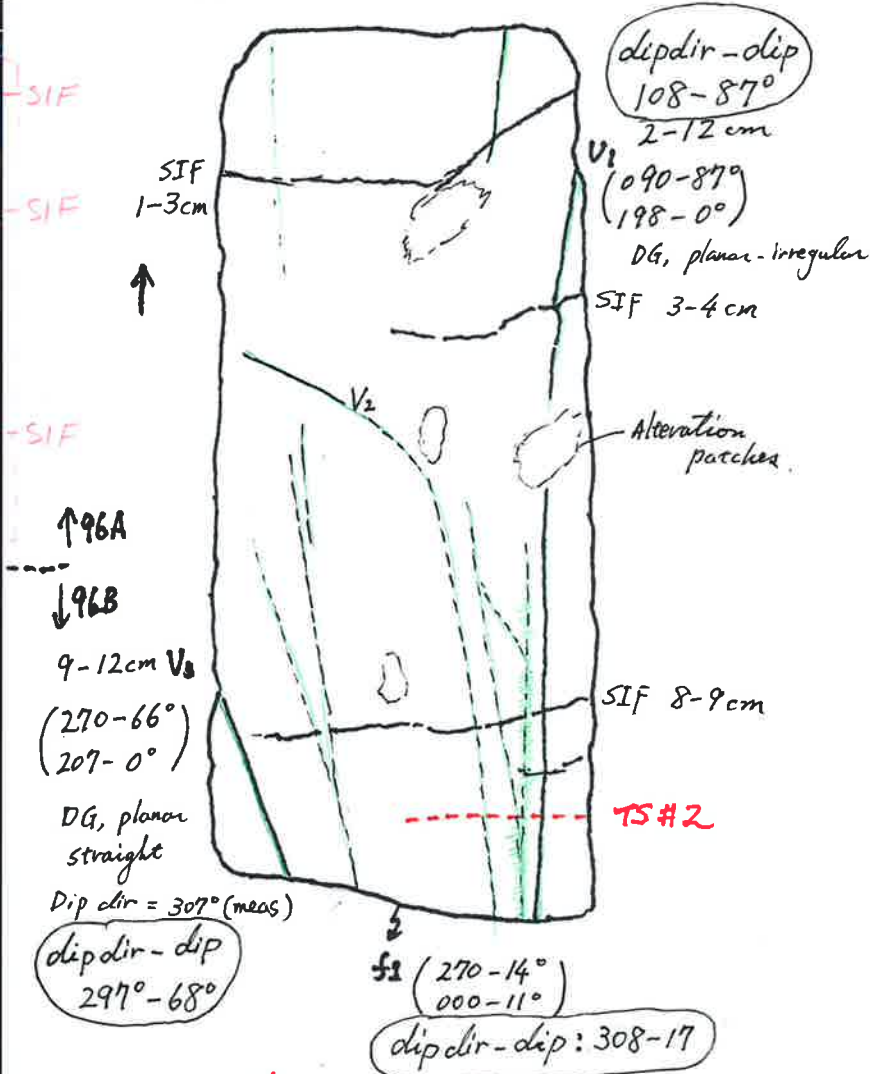 SIF
SIF
SIF
dipdir-dip
108-87°
2-12 cm
V1
(090-87°
198-0°)
DG, planar-irregular
SIF
1-3cm
SIF 3-4 cm
V2
Alteration
patches.
↑96A
↓96B
9-12cm V3
(270-66°
207-0°)
DG, planar
straight
Dip dir = 307° (meas)
dipdir-dip
297°-68°
SIF 8-9 cm
TS#2
f1 (270-14°
000-11°)
dipdir-dip: 308-17